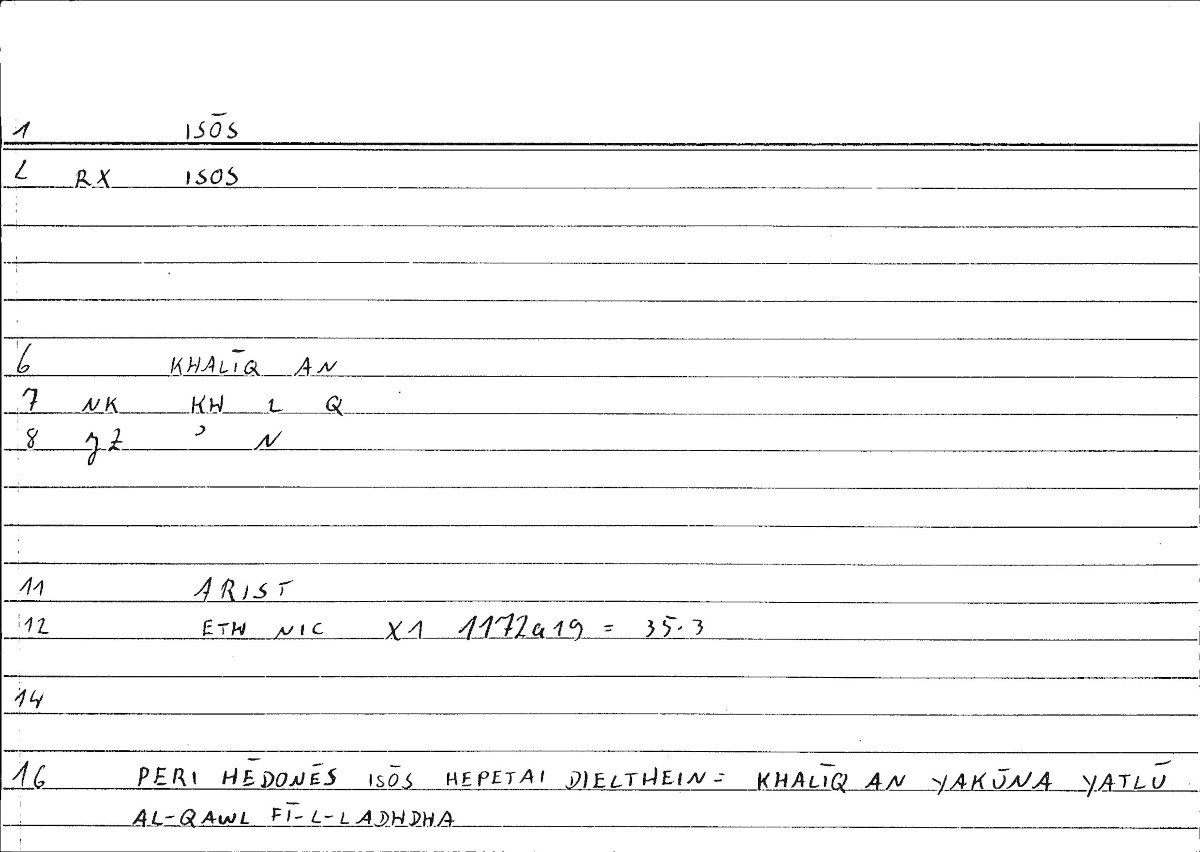 1 ISŌS
2 RX ISOS
6 KHALĪQ AN
7 NK KH L Q
8 YZ ʾ N
11 ARIST
12 ETH NIC X1 1172a19 = 35.3
14
16 PERI HĒDONĒS ISŌS HEPETAI DIELTHEIN = KHALĪQ AN YAKŪNA YATLŪ
AL-QAWL FĪ-L-LADHDHA